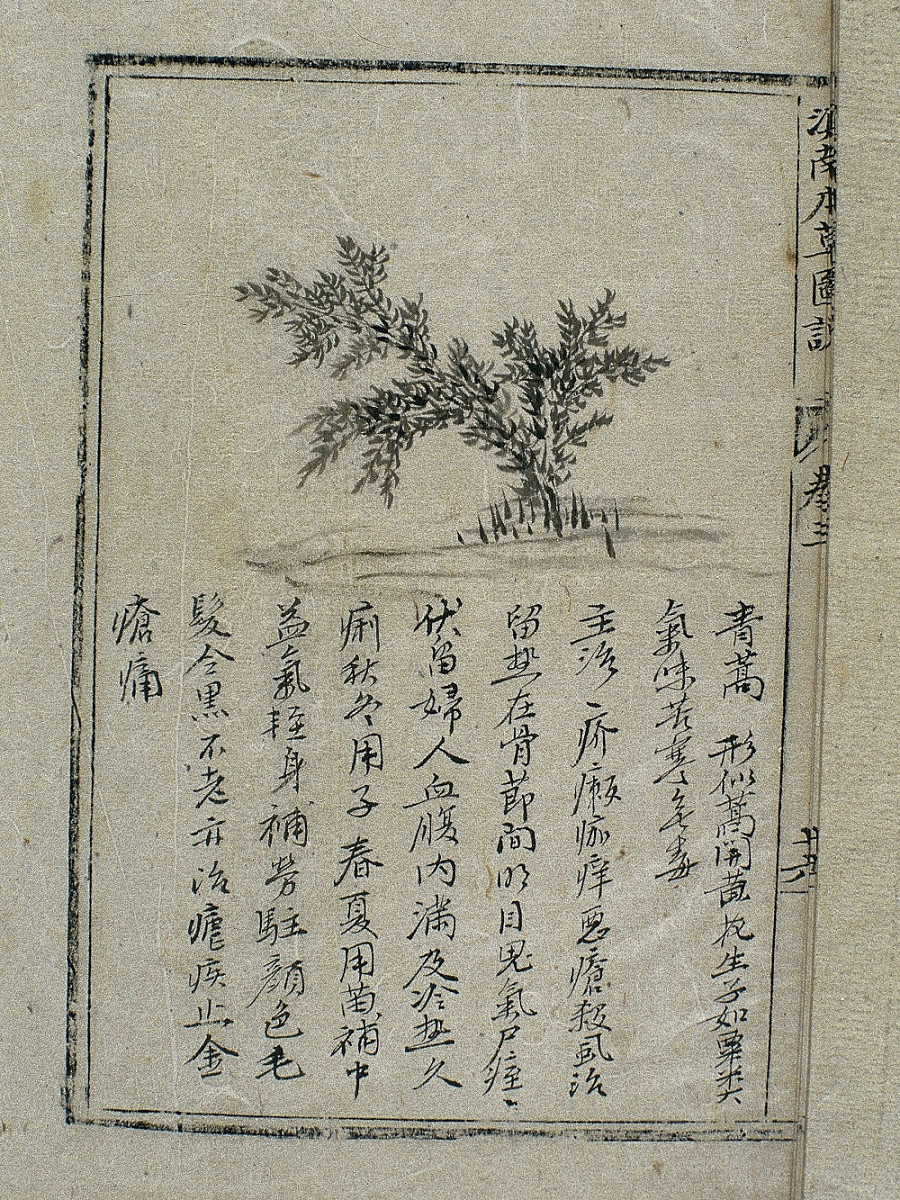 滇南本草圖説
卷三
青蒿 形似蒿開黃花生子如粟米大
氣味苦寒無毒
主治疥瘙痂痒惡瘡殺虱治
留熱在骨節間明目鬼氣尸疰
伏留婦人血腹内滿及冷熱久
痢秋冬用子春夏用苗補中
益氣輕身補勞駐顔色毛
髮令黑不老亦治瘧疾止金
瘡痛